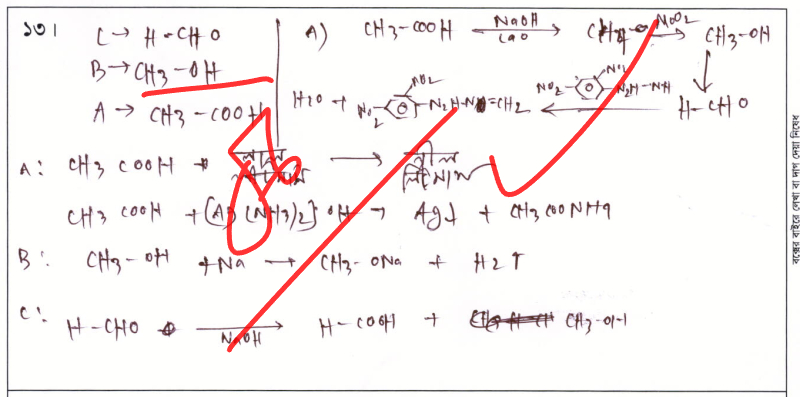 ১৩।
C → H-CHO
B → CH3-OH
A → CH3-COOH
A) CH3-COOH NaOH CaO MoO2 CH3-OH
H-CHO
NO2 NO2 N2H-NH
H2O + NO2 NO2 =CH2
A: CH3 COOH + লাল লিটমাস → নীল লিটমাস
CH3 COOH + [Ag(NH3)2] OH → Ag↓ + CH3COONH4
B: CH3-OH + Na → CH3-ONa + H2↑
C: H-CHO NaOH → H-COOH + CH3-OH
বক্সের বাইরে লেখা বা দাগ দেয়া নিষেধ